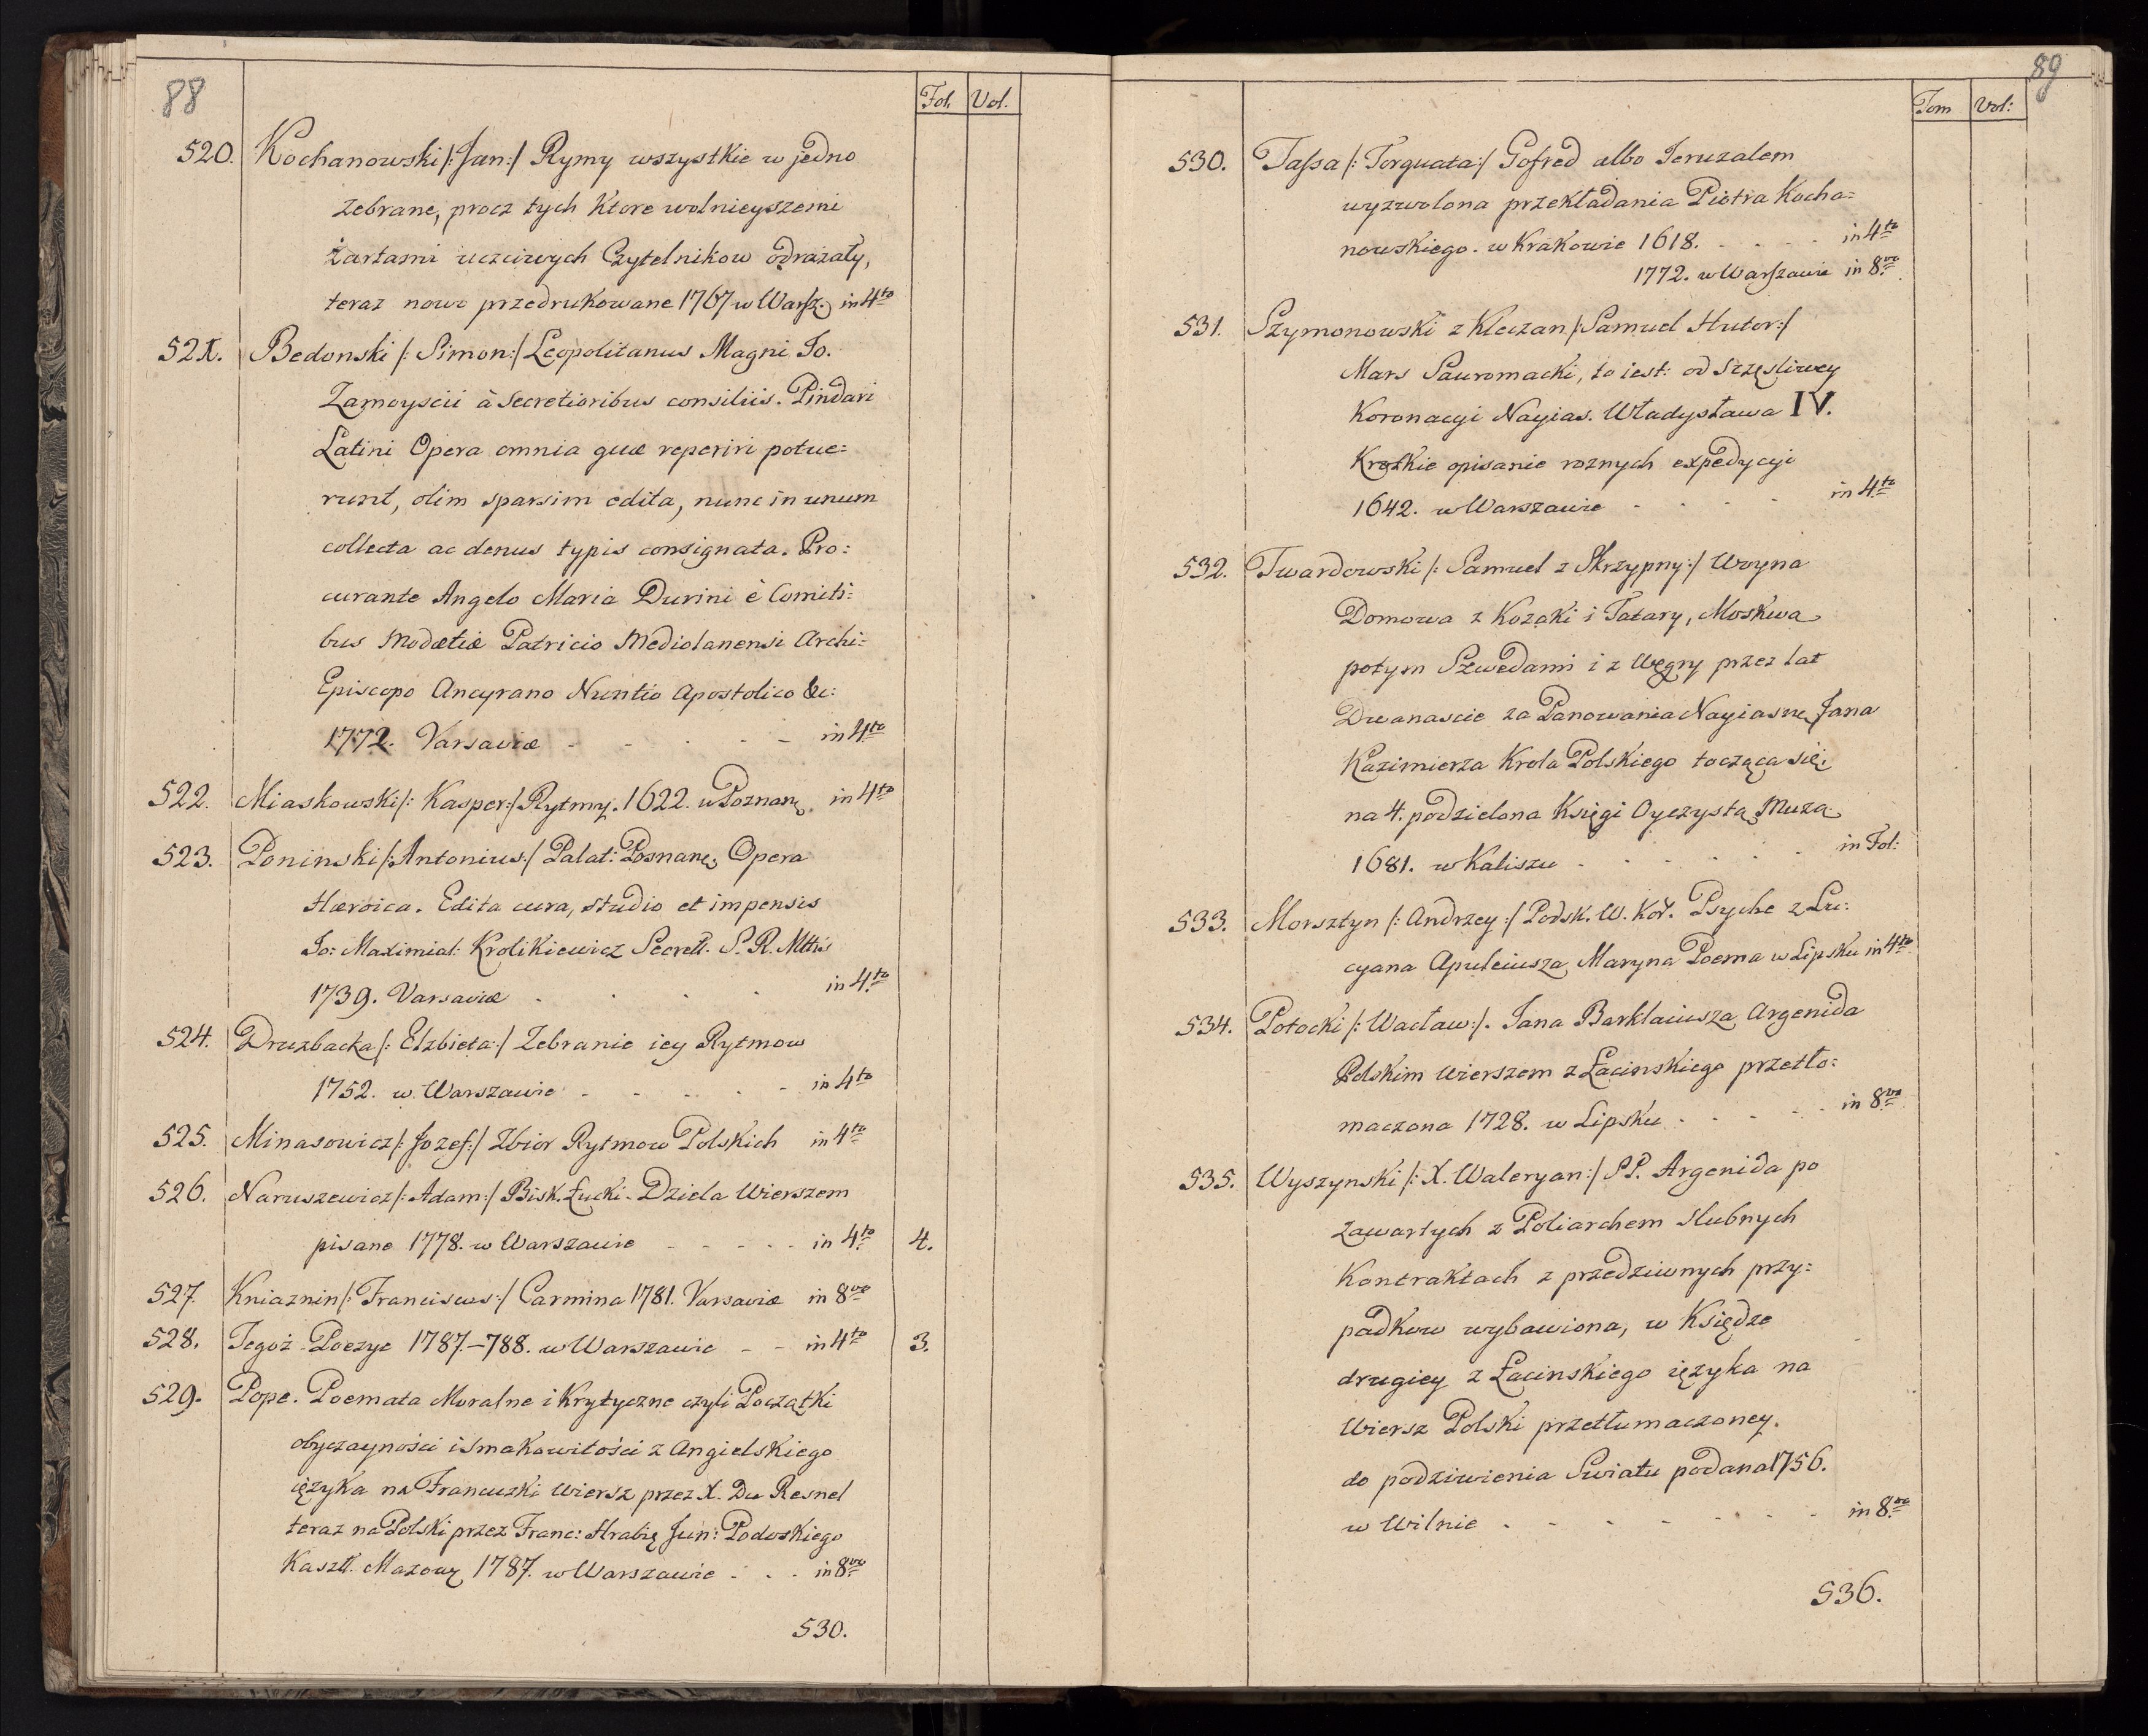 88
Fol. Vol.
520. Kochanowski /: Jan :/ Rymy wszystkie w jedno
zebrane, procz tych Ktore wolnieyszemi
żartami uczciwych Czytelnikow odrażały,
teraz nowo przedrukowane 1767 w Warsz. in 4to
521. Bedonski /: Simon :/ Leopolitanus Magni Jo.
Zamoyscii à Secretioribus consiliis. Pindari
Latini Opera omnia quæ reperiri potue=
runt, olim sparsim edita, nunc in unum
collecta ac denus typis consignata. Pro=
curante Angelo Maria Durini è Comiti=
bus Modœtiæ Patricio Mediolanensi Archi=
Episcopo Ancyrano Nuntio Apostolico &c:
1772. Varsaviæ - - - - - in 4to
522. Miaskowski /: Kasper :/ Rytmy. 1622. w Poznan. in 4to
523. Poninski /: Antonius :/ Palat: Posnan. Opera
Hæroica. Edita cura, studio et impensis
Jo: Maximial: Krolikiewicz Secrett. S. R. Mttis
1739. Varsaviæ - - - - in 4to
524. Druzbacka /: Elzbieta :/ Zebranie iey Rytmow
1752. w Warszawie - - - - - in 4to
525. Minasowicz /: Jozef :/ Zbior Rytmow Polskich in 4to
526. Naruszewicz /: Adam :/ Bisk. Łucki. Dziela Wierszem
pisane 1778. w Warszawie - - - - - in 4to 4.
527. Kniaznin /: Franciscus :/ Carmina 1781. Varsaviæ in 8vo
528. Tegoż Poezye 1787.-788. w Warszawie - - in 4to 3.
529. Pope. Poemata Moralne i Krytyczne czyli Początki
obyczayności i smakowitości z Angielskiego
ięzyka na Francuzki Wiersz przez X. Du Resnel
teraz na Polski przez Franc: Hrabię Jun: Podoskiego
Kasztl. Mazow. 1787. w Warszawie - - - in 8vo
530.
89
Tom Vol:
530. Tassa /: Torquata :/ Gofred albo Jeruzalem
wyzwolona przekładania Piotra Kocha=
nowskiego. w Krakowie 1618. - - - - in 4to
1772. w Warszawie in 8vo
531. Szymonowski z Kleczan /: Samuel Hutor :/
Mars Sauromacki, to iest: od Szczęśliwey
Koronacyi Nayias. Władysława IV.
Krotkie opisanie roznych expedycyi
1642. w Warszawie - - - - in 4to
532. Twardowski /: Samuel z Skrzypny :/ Woyna
Domowa z Kozaki i Tatary, Moskwa
potym Szwedami i z Węgry przez lat
Dwanascie za Panowania Nayiasn. Jana
Kazimierza Krola Polskiego tocząca się.
na 4. podzielona Księgi Oyczystą Muzą
1681. w Kaliszu - - - - - - in Fol:
533. Morsztyn /: Andrzey :/ Podsk. W. Kor. Psyche z Lu=
cyana Apuleiusza, Maryna Poema w Lipsku in 4to
534. Potocki /: Wacław :/. Jana Barklaiusza Argenida
Polskim Wierszem z Łacinskiego przetło=
maczona 1728. w Lipsku - - - - - in 8vo
535. Wyszynski /: X. Waleryan :/ S.P. Argenida po
zawartych z Poliarchem slubnych
Kontraktach z przedziwnych przy=
padkow wybawiona, w Księdze
drugiey z Łacinskiego ięzyka na
Wiersz Polski przetłumaczoney.
do podziwienia Swiatu podana 1756.
w Wilnie - - - - - - - in 8vo
536.